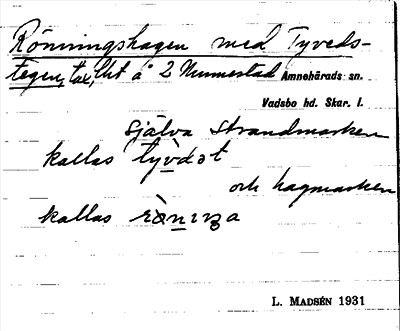 Rönningshagen med Tyveds-
tegen, tax, lht å 2 Nunnestad Amnehärads sn.
Vadsbo hd. Skar. l.
själva strandmarken
kallas
och hagmarken
kallas
L. MADSÉN 1931